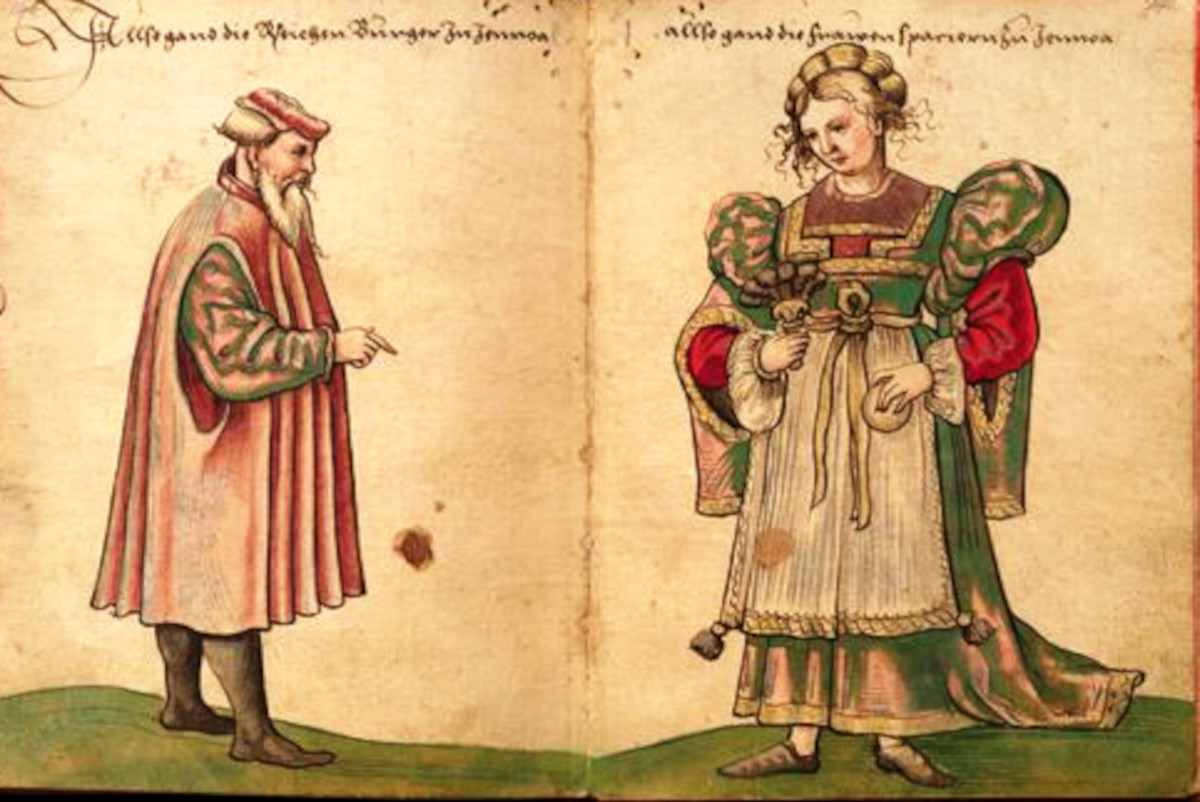 Allso gand die Reichen Burger zu Jennoa
allso gand die frawen spacieren zu Jennoa